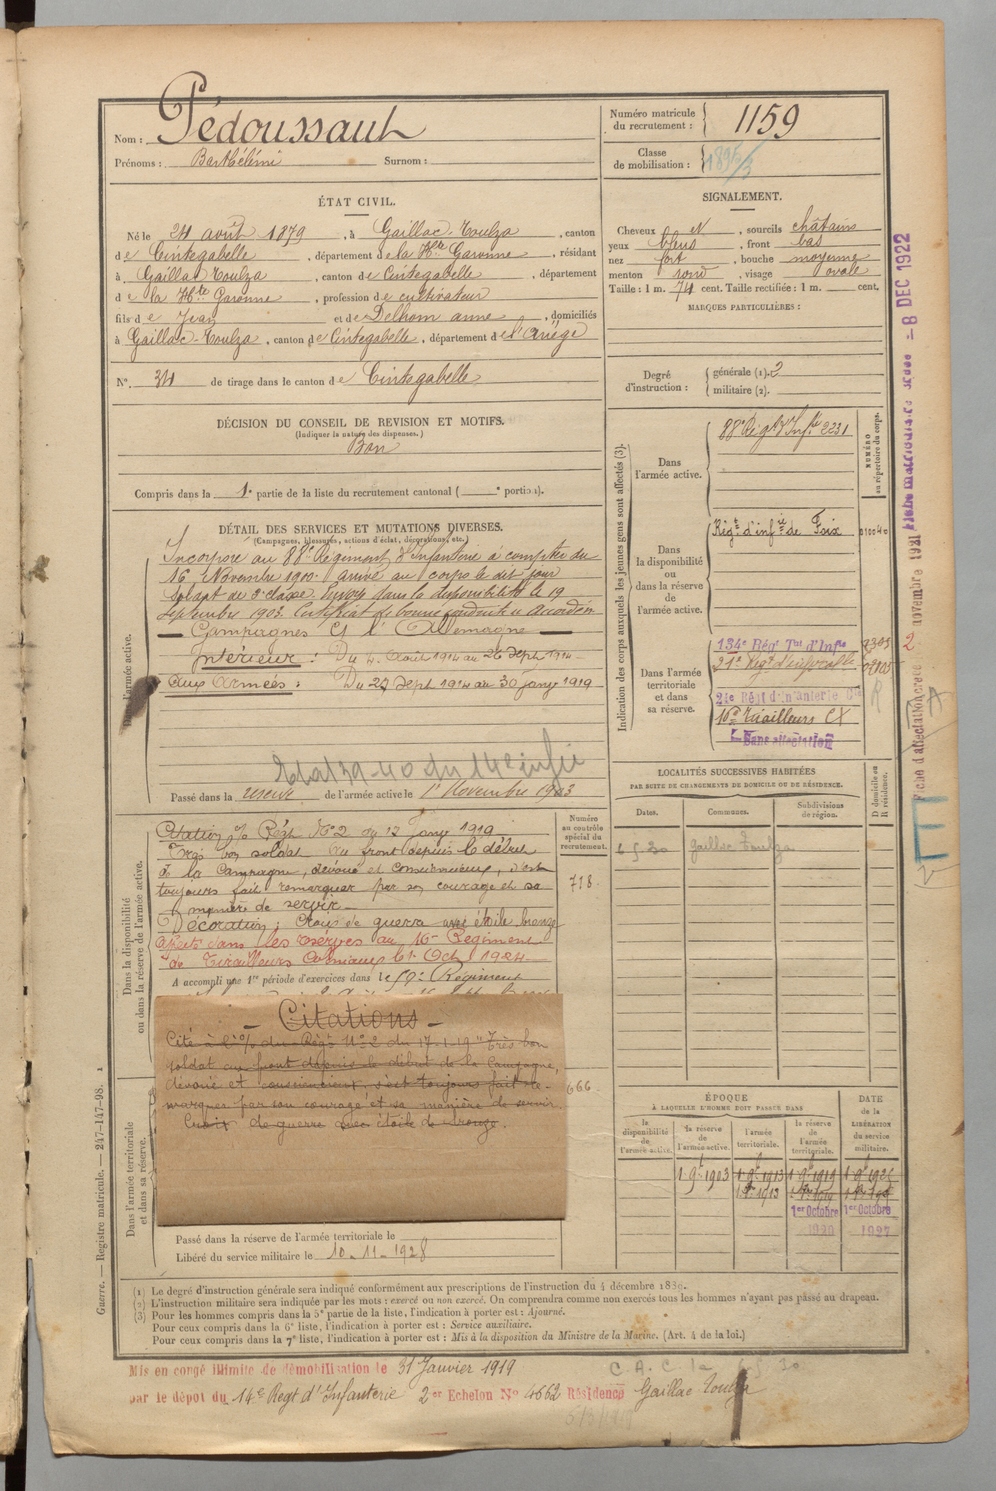 Nom : Pédoussaut
Prénoms : Barthélémi Surnom :
Numéro matricule du recrutement : 1159
Classe de mobilisation : 1895/3
ÉTAT CIVIL.
Né le 24 août 1879, à Gaillac-Toulza, canton
de Cintegabelle, département de la Hte Garonne, résidant
à Gaillac-Toulza, canton de Cintegabelle, département
de la Hte Garonne, profession de cultivateur
fils de Jean et de Delhom anne, domiciliés
à Gaillac-Toulza, canton de Cintegabelle, département de l'Ariège
N° 34 de tirage dans le canton de Cintegabelle
SIGNALEMENT.
Cheveux N, sourcils châtains
yeux bleus, front bas
nez fort, bouche moyenne
menton rond, visage ovale
Taille : 1 m. 74 cent. Taille rectifiée : 1 m. cent.
MARQUES PARTICULIÈRES :
Degré d'instruction : générale (1). 2
militaire (2).
DÉCISION DU CONSEIL DE REVISION ET MOTIFS.
(Indiquer la nature des dispenses.)
Bon
Compris dans la 1e partie de la liste du recrutement cantonal ( e portion).
DÉTAIL DES SERVICES ET MUTATIONS DIVERSES.
(Campagnes, blessures, actions d'éclat, décorations, etc.)
Incorporé au 88e Régiment d'Infanterie à compter du
16 Novembre 1900. Arrivé au corps le dit jour
Soldat de 2e classe. Envoyé dans la disponibilité le 19
Septembre 1903. Certificat de bonne conduite accordé
Campagnes Ct l'Allemagne
Intérieur : Du 4 Août 1914 au 26 Sept 1914
Aux Armées : Du 27 Sept 1914 au 30 Janv 1919
Passé dans la réserve de l'armée active le 1er Novembre 1903
Dans l'armée active.
Indication des corps auxquels les jeunes gens sont affectés (3).
NUMÉRO au répertoire du corps.
Dans l'armée active.
88e Régt d'Infie 2231
Dans la disponibilité ou dans la réserve de l'armée active.
Régt d'infie de Foix 010040
Dans l'armée territoriale et dans sa réserve.
134e Régt Tal d'Infie
21e Régt d'infanterie Cle
16e Tirailleurs CX
Sans affectation
LOCALITÉS SUCCESSIVES HABITÉES
PAR SUITE DE CHANGEMENTS DE DOMICILE OU DE RÉSIDENCE.
Dates. Communes. Subdivisions de région. D domicile ou R résidence.
6 5 30 Gaillac Toulza
Dans la disponibilité ou dans la réserve de l'armée active.
Numéro au contrôle spécial du recrutement.
718.
Citation O/ Régt N° 2 du 17 Janvr 1919
Très bon soldat au front depuis le début
de la Campagne, dévoué et consciencieux, s'est
toujours fait remarquer par son courage et sa
manière de servir
Décoration : Croix de guerre avec étoile bronze
Affecté dans les réserves au 16e Régiment
de Tirailleurs Coloniaux le 1er Oct. 1924
A accompli une 1re période d'exercices dans le 59e Régiment
Citations
Cité à l'O/ du Régt N° 2 du 17-1-19 "Très bon
soldat au front depuis le début de la Campagne,
dévoué et consciencieux, s'est toujours fait re-
marquer par son courage et sa manière de servir.
Croix de guerre avec étoile de bronze.
Dans l'armée territoriale et dans sa réserve.
Passé dans la réserve de l'armée territoriale le
Libéré du service militaire le 10-11-1928
ÉPOQUE
À LAQUELLE L'HOMME DOIT PASSER DANS
la disponibilité de l'armée active.
la réserve de l'armée active.
l'armée territoriale.
la réserve de l'armée territoriale.
DATE de la LIBÉRATION du service militaire.
1 9e 1903 1 9e 1913 1 9e 1919 1 9e 1925
1er Octobre 1920 1er Octobre 1927
(1) Le degré d'instruction générale sera indiqué conformément aux prescriptions de l'instruction du 4 décembre 1889.
(2) L'instruction militaire sera indiquée par les mots : exercé ou non exercé. On comprendra comme non exercés tous les hommes n'ayant pas passé au drapeau.
(3) Pour les hommes compris dans la 5e partie de la liste, l'indication à porter est : Ajourné.
Pour ceux compris dans la 6e liste, l'indication à porter est : Service auxiliaire.
Pour ceux compris dans la 7e liste, l'indication à porter est : Mis à la disposition du Ministre de la Marine. (Art. 4 de la loi.)
Mis en congé illimité de démobilisation le 31 Janvier 1919
par le dépot du 14e Régt d'Infanterie 2er Echelon N° 4662 Résidence Gaillac Toulza
Guerre. — Registre matricule. — 247-147-98.
8 DEC 1922